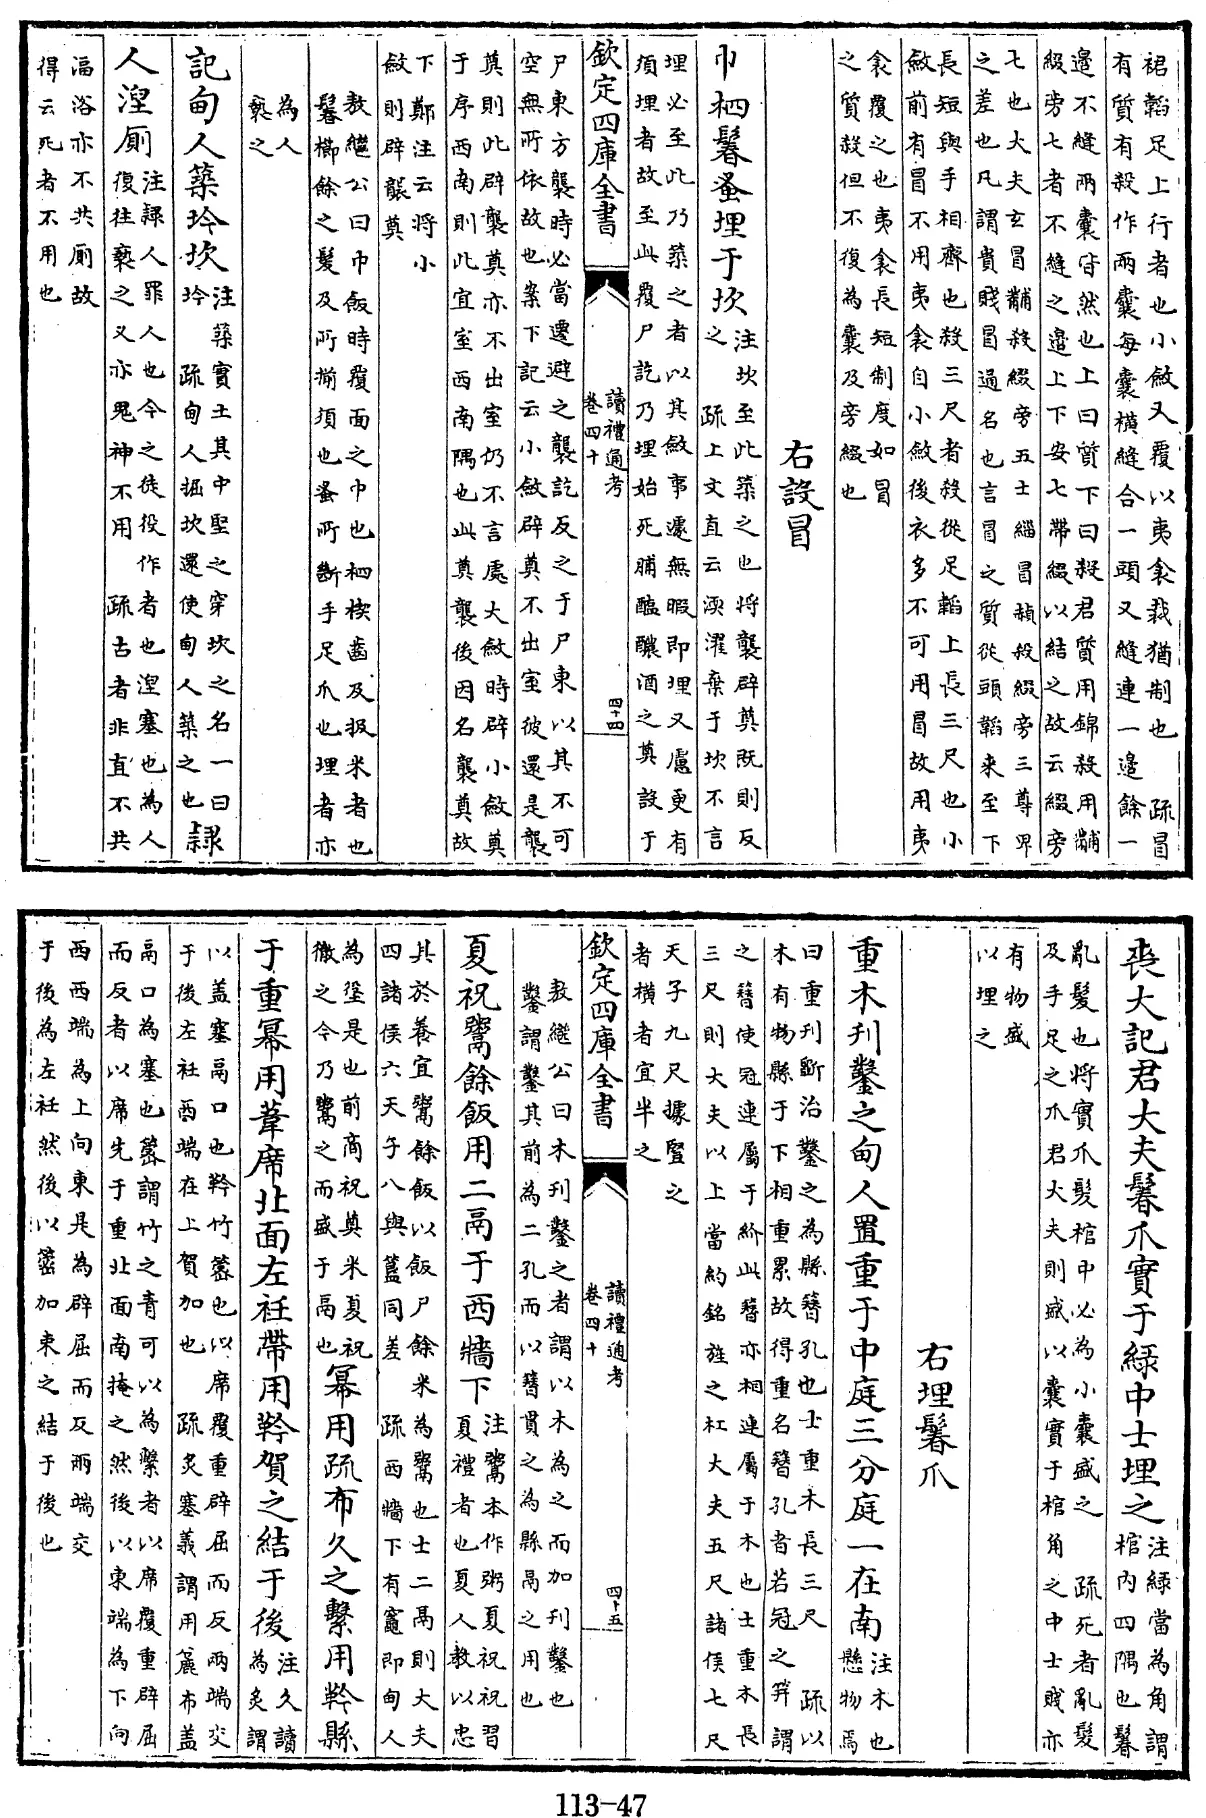 裙韜足上行者也小斂又覆以夷衾裁猶制也　疏冒
有質有殺作兩囊每囊橫縫合一頭又縫連一邉餘一
邉不縫兩囊皆然也上曰質下曰殺君質用錦殺用黼
綴旁七者不縫之邉上下安七帶綴以結之故云綴旁
七也大夫玄冒黼殺綴旁五士緇冒赬殺綴旁三尊卑
之差也凡謂貴賤冒通名也言冒之質從頭韜来至下
長短與手相齊也殺三尺者殺從足韜上長三尺也小
斂前有冒不用夷衾自小斂後衣多不可用冒故用夷
衾覆之也夷衾長短制度如冒
之質殺但不復為囊及旁綴也
右設冒
巾柶鬊蚤埋于坎
注坎至此築之也將襲辟奠既則反
之　疏上文直云渜濯棄于坎不言
埋必至此乃築之者以其斂事遽無暇即埋又慮更有
須埋者故至此覆尸訖乃埋始死脯醢醴酒之奠設于
欽定四庫全書
讀禮通考
卷四十
四十四
尸東方襲時必當遷避之襲訖反之于尸東以其不可
空無所依故也案下記云小斂辟奠不出室彼還是襲
奠則此辟襲奠亦不出室仍不言處大斂時辟小斂奠
于序西南則此宜室西南隅也此奠襲後因名襲奠故
下鄭注云将小
斂則辟襲奠
敖繼公曰巾飯時覆面之巾也柶楔齒及扱米者也
鬊櫛餘之髮及所揃須也蚤所斷手足爪也埋者亦
為人
褻之
記甸人築坅坎
注築實土其中堅之穿坎之名一曰
坅　疏甸人掘坎還使甸人築之也
隸
人湼厠
注隸人罪人也今之徒役作者也湼塞也為人
復往褻之又亦鬼神不用　疏古者非直不共
湢浴亦不共厠故
得云死者不用也
喪大記君大夫鬊爪實于綠中士埋之
注綠當為角謂
棺内四隅也鬊
亂髮也将實爪髮棺中必為小囊盛之　疏死者亂髮
及手足之爪君大夫則盛以囊實于棺角之中士賤亦
有物盛
以埋之
右埋鬊爪
重木刊鑿之甸人置重于中庭三分庭一在南
注木也
懸物焉
曰重刊斲治鑿之為縣簪孔也士重木長三尺　疏以
木有物縣于下相重累故得重名簪孔者若冠之筓謂
之簪使冠連屬于紒此簪亦相連屬于木也士重木長
三尺則大夫以上當約銘旌之杠大夫五尺諸侯七尺
天子九尺據竪之
者橫者宜半之
欽定四庫全書
讀禮通考
卷四十
四十五
敖繼公曰木刊鑿之者謂以木為之而加刊鑿也
鑿謂鑿其前為二孔而以簪貫之為縣鬲之用也
夏祝鬻餘飯用二鬲于西牆下
注鬻本作粥夏祝祝習
夏禮者也夏人教以忠
其於養宜鬻餘飯以飯尸餘米為鬻也士二鬲則大夫
四諸侯六天子八與簋同差　疏西牆下有竈即甸人
為垼是也前商祝奠米夏祝
徹之今乃鬻之而盛于鬲也
冪用疏布久之繫用軡縣
于重冪用葦席北面左衽帶用軡賀之結于後
注久讀
為灸謂
以蓋塞鬲口也軡竹䈼也以席覆重辟屈而反兩端交
于後左衽西端在上賀加也　疏灸塞義謂用麤布蓋
鬲口為塞也䈼謂竹之青可以為繫者以席覆重辟屈
而反者以席先于重北面南掩之然後以東端為下向
西西端為上向東是為辟屈而反兩端交
于後為左衽然後以䈼加束之結于後也
113-47